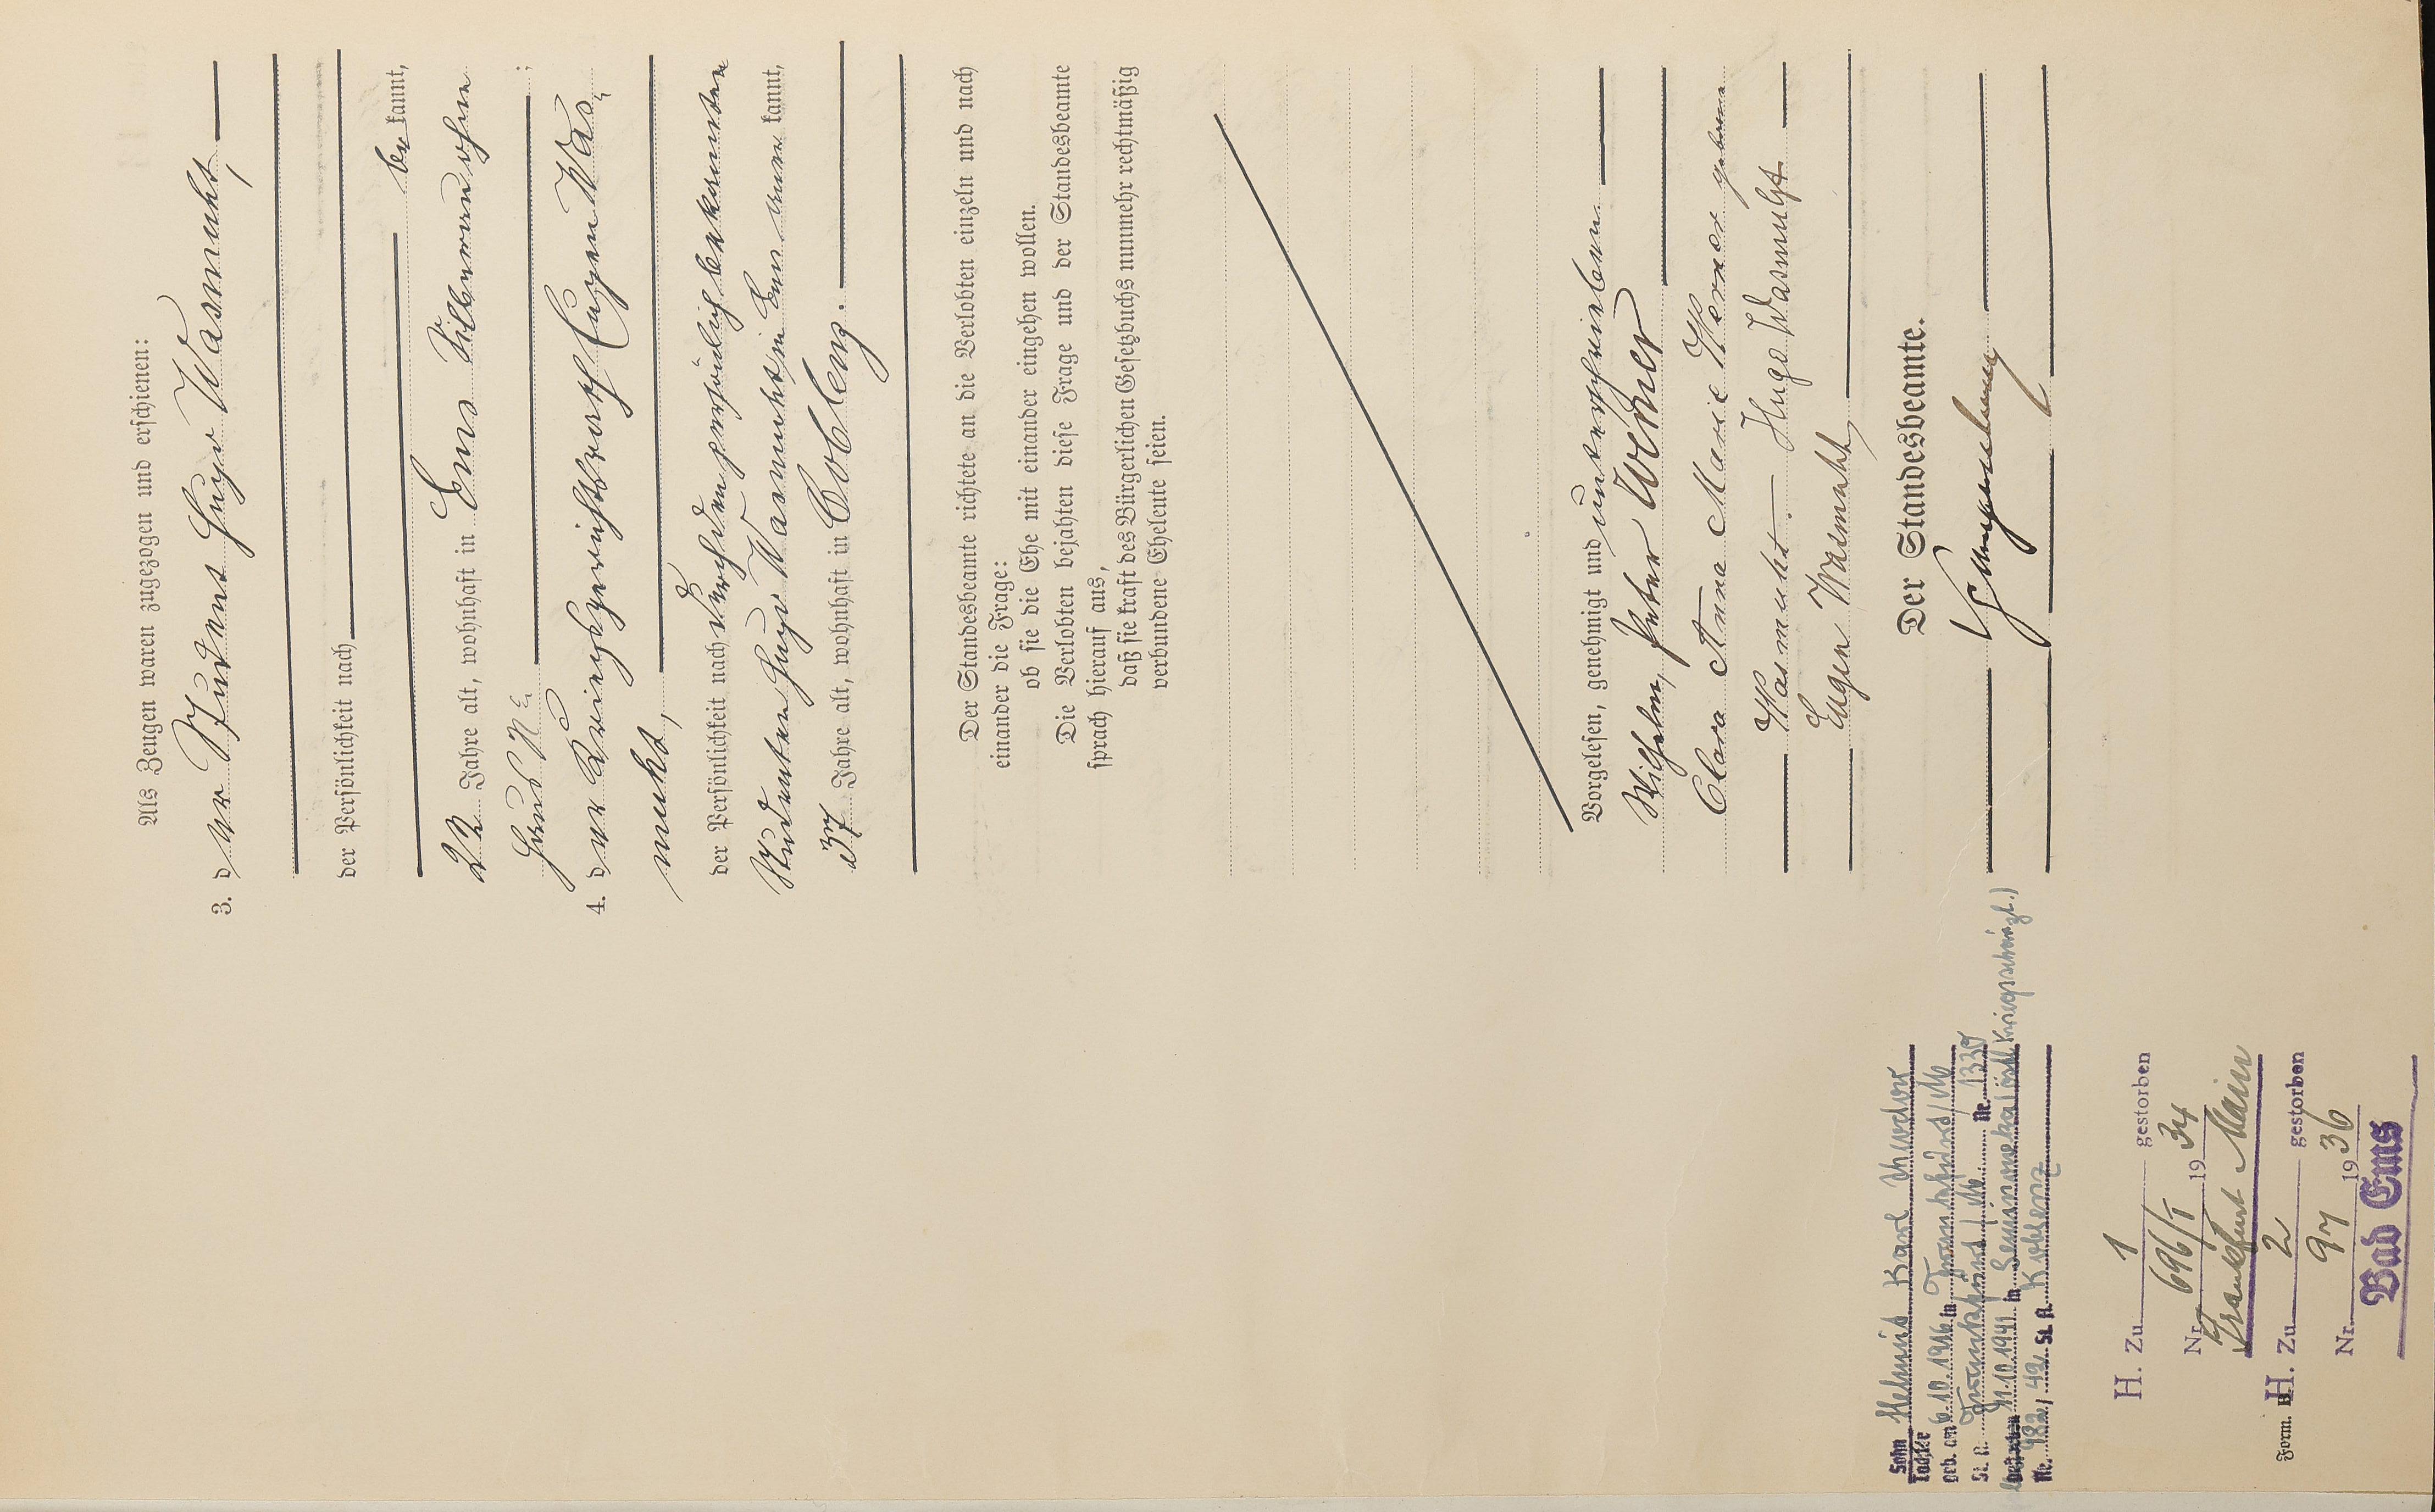 Als Zeugen waren zugezogen und erschienen:
3. der Student Hugo Wasmuht,
der Persönlichkeit nach
be kannt,
22 Jahre alt, wohnhaft in Ems Silberau ohne
Haus No ;
4. der Kriegsgerichtsrath Eugen Was-
muht,
der Persönlichkeit nach durch den persönlich bekannten
Studenten Hugo Wasmuht in Ems aner kannt,
37 Jahre alt, wohnhaft in Coblenz.
Der Standesbeamte richtete an die Verlobten einzeln und nach
einander die Frage:
ob sie die Ehe mit einander eingehen wollen.
Die Verlobten bejahten diese Frage und der Standesbeamte
sprach hierauf aus,
daß sie kraft des Bürgerlichen Gesetzbuchs nunmehr rechtmäßig
verbundene Eheleute seien.
Vorgelesen, genehmigt und unterschrieben
Wilhelm, Peter Werner
Clara Anna Marie Werner geborene
Wasmuht. Hugo Wasmuht
Eugen Wasmuht,
Der Standesbeamte.
Sohn Helmut Karl Theodor
Tochter
geb. am 6.10.1916 in Frankfurt/M
St. A. Frankfurt/M. Nr. 1330
11.10.1941 in
Nr. 982/42 St. A. Koblenz
H. Zu 1 gestorben
Nr. 696/I 1934
Frankfurt Main
H. Zu 2 gestorben
Nr. 97 1936
Bad Ems
Form. B.